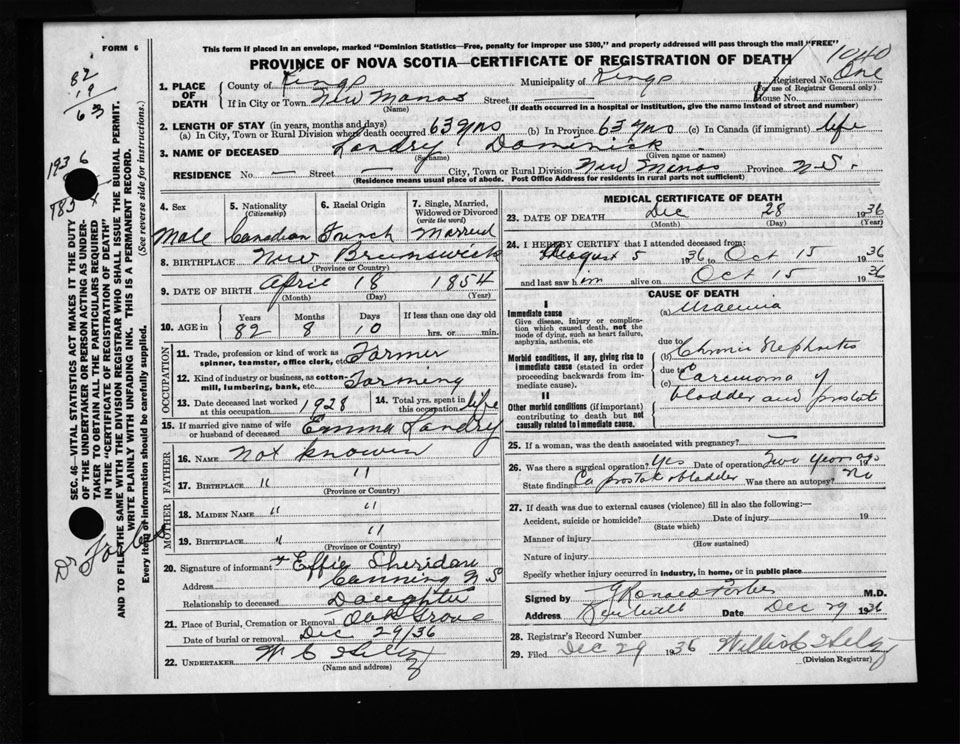 FORM 6
This form if placed in an envelope, marked "Dominion Statistics—Free, penalty for improper use $300," and properly addressed will pass through the mail "FREE"
PROVINCE OF NOVA SCOTIA—CERTIFICATE OF REGISTRATION OF DEATH
1040
Registered No. One
(For use of Registrar General only)
1. PLACE OF DEATH
County of Kings Municipality of Kings
If in City or Town New Manas Street — House No.
(Name) (If death occurred in a hospital or institution, give the name instead of street and number)
2. LENGTH OF STAY (in years, months and days)
(a) In City, Town or Rural Division where death occurred 63 yrs (b) In Province 63 yrs (c) In Canada (if immigrant) life
3. NAME OF DECEASED Landry Dominick
(Surname) (Given name or names)
RESIDENCE No. — Street — City, Town or Rural Division New Manas Province N.S.
(Residence means usual place of abode. Post Office Address for residents in rural parts not sufficient)
4. Sex Male
5. Nationality (Citizenship) Canadian
6. Racial Origin French
7. Single, Married, Widowed or Divorced (write the word) Married
8. BIRTHPLACE New Brunswick
(Province or Country)
9. DATE OF BIRTH April 18 1854
(Month) (Day) (Year)
10. AGE in Years 82 Months 8 Days 10 If less than one day old hrs. or min.
OCCUPATION
11. Trade, profession or kind of work as spinner, teamster, office clerk, etc. Farmer
12. Kind of industry or business, as cotton-mill, lumbering, bank, etc. Farming
13. Date deceased last worked at this occupation 1928
14. Total yrs. spent in this occupation life
15. If married give name of wife or husband of deceased Emma Landry
FATHER
16. NAME Not known
17. BIRTHPLACE " "
(Province or Country)
MOTHER
18. MAIDEN NAME " "
19. BIRTHPLACE " "
(Province or Country)
20. Signature of informant Effie Sheridan
Address Canning N S
Relationship to deceased Daughter
21. Place of Burial, Cremation or Removal Oak Grove
Date of burial or removal Dec 29/36
22. UNDERTAKER
(Name and address)
MEDICAL CERTIFICATE OF DEATH
23. DATE OF DEATH Dec 28 1936
(Month) (Day) (Year)
24. I HEREBY CERTIFY that I attended deceased from:
August 5 1936 to Oct 15 1936
and last saw him alive on Oct 15 1936
CAUSE OF DEATH
I
Immediate cause
Give disease, injury or complication which caused death, not the mode of dying, such as heart failure, asphyxia, asthenia, etc
(a) Uraemia
due to
Morbid conditions, if any, giving rise to immediate cause (stated in order proceeding backwards from immediate cause).
(b) Chronic Nephritis
due to
(c) Carcinoma of bladder and prostate
II
Other morbid conditions (if important) contributing to death but not causally related to immediate cause.
25. If a woman, was the death associated with pregnancy? —
26. Was there a surgical operation? Yes Date of operation Two years ago 19
State findings Ca prostate & bladder Was there an autopsy? No
27. If death was due to external causes (violence) fill in also the following:—
Accident, suicide or homicide? Date of injury 19
(State which)
Manner of injury
(How sustained)
Nature of injury
Specify whether injury occurred in industry, in home, or in public place
Signed by Ronald Forbes M.D.
Address Date Dec 29 1936
28. Registrar's Record Number
29. Filed Dec 29 1936
(Division Registrar)
82
19
63
1936
Dr Forbes
SEC. 46—VITAL STATISTICS ACT MAKES IT THE DUTY OF THE UNDERTAKER OR PERSON ACTING AS UNDERTAKER TO OBTAIN ALL THE PARTICULARS REQUIRED IN THE "CERTIFICATE OF REGISTRATION OF DEATH" AND TO FILE THE SAME WITH THE DIVISION REGISTRAR WHO SHALL ISSUE THE BURIAL PERMIT.
WRITE PLAINLY WITH UNFADING INK. THIS IS A PERMANENT RECORD.
Every item of information should be carefully supplied. (See reverse side for instructions.)